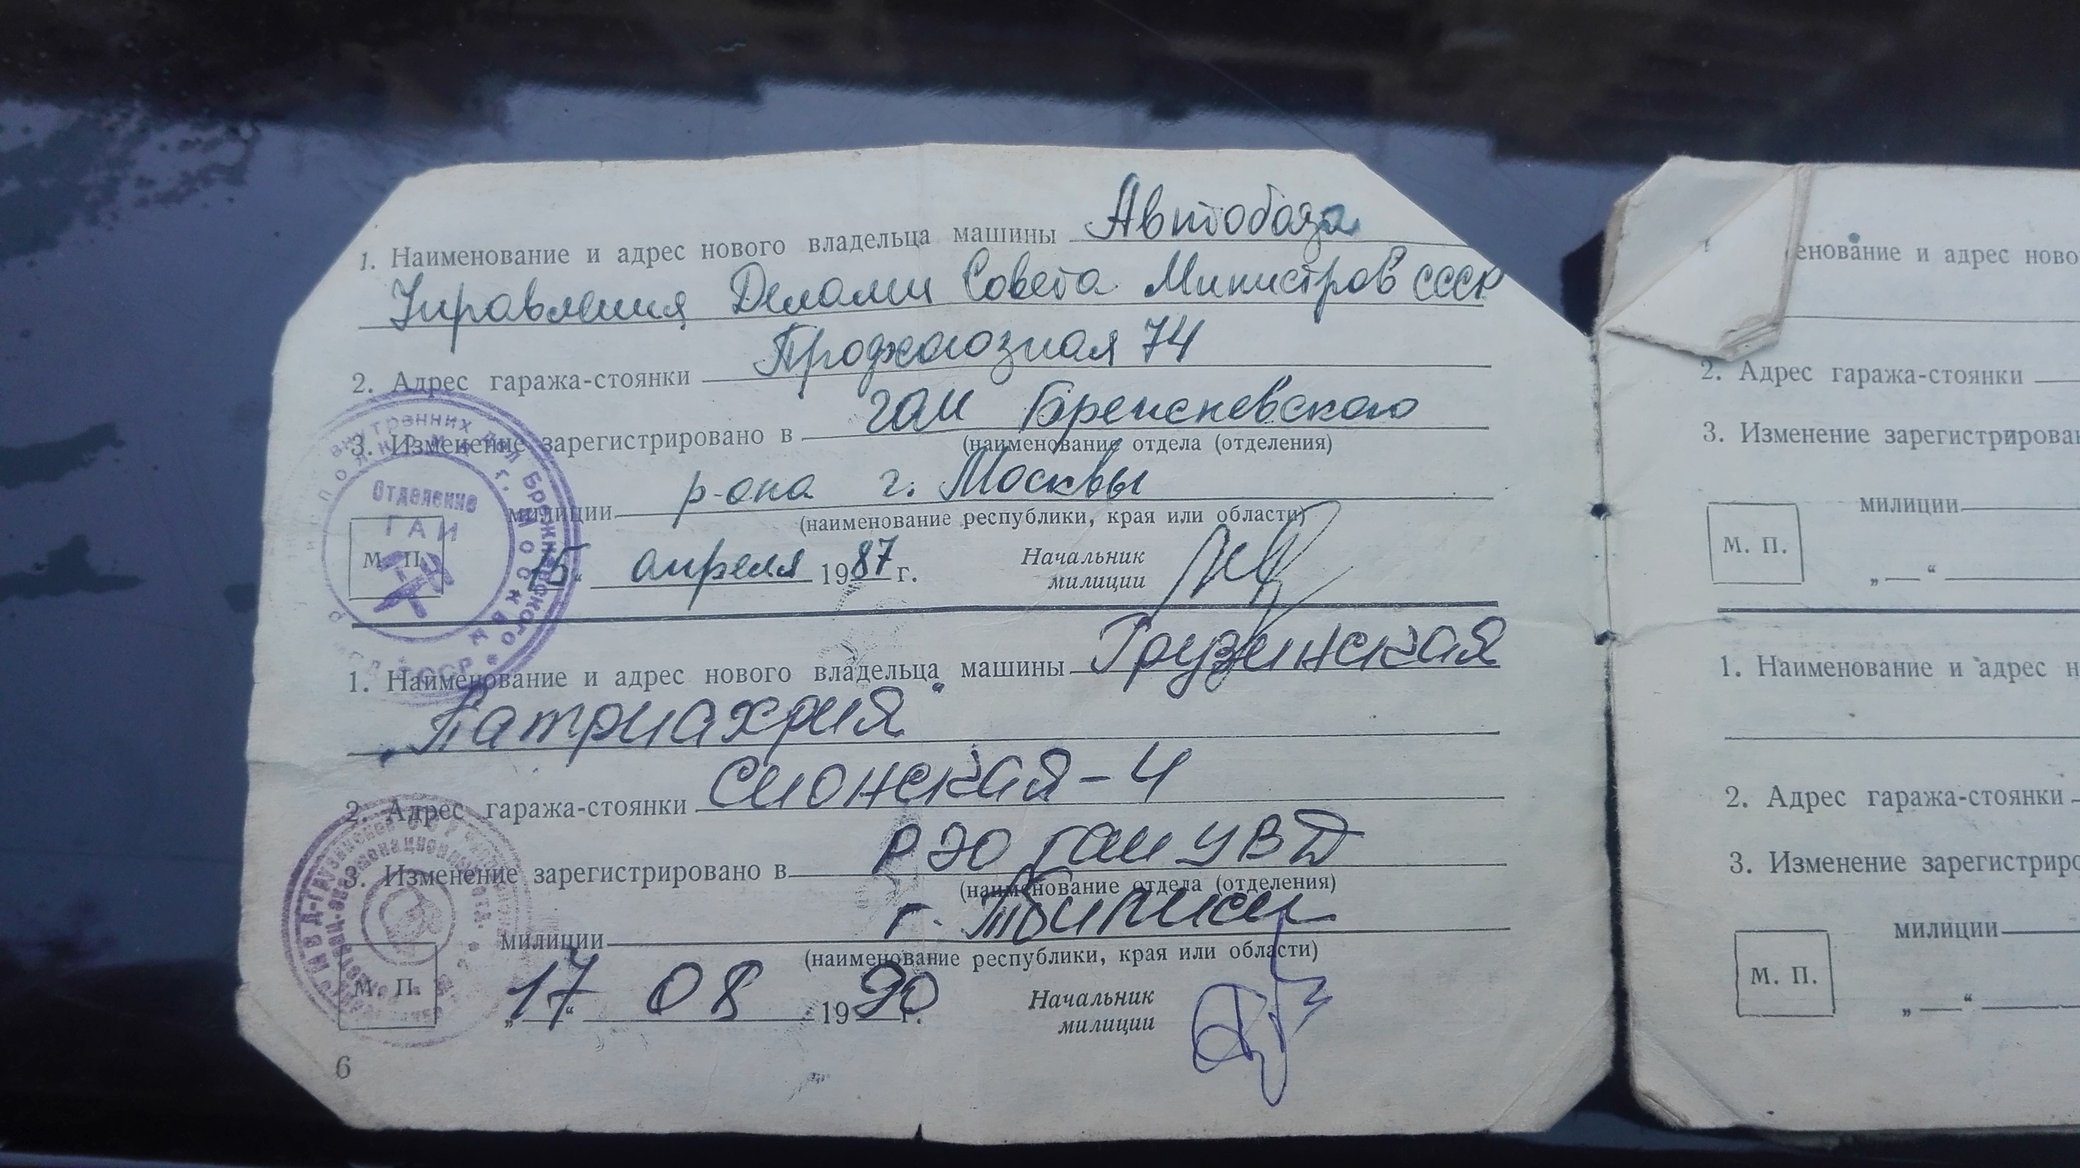 1. Наименование и адрес нового владельца машины Автобаза
Управления Делами Совета Министров СССР
2. Адрес гаража-стоянки Профсоюзная 74
3. Изменение зарегистрировано в ГАИ Брежневского
(наименование отдела (отделения)
милиции р-она г. Москвы
(наименование республики, края или области)
М. П. 15 апреля 1987 г. Начальник
милиции
внутренних дел Брежневского
г. Москвы
Отделение
ГАИ
1. Наименование и адрес нового владельца машины Грузинская
„Патриахрия"
2. Адрес гаража-стоянки Сионская-4
3. Изменение зарегистрировано в РЭО ГАИ УВД
(наименование отдела (отделения)
милиции г. Тбилиси
(наименование республики, края или области)
М. П. „17“ 08 1990 г. Начальник
милиции
6
енование и адрес ново
2. Адрес гаража-стоянки
3. Изменение зарегистрирован
милиции
М. П. „ “
1. Наименование и адрес н
2. Адрес гаража-стоянки
3. Изменение зарегистриро
милиции
М. П. „ “